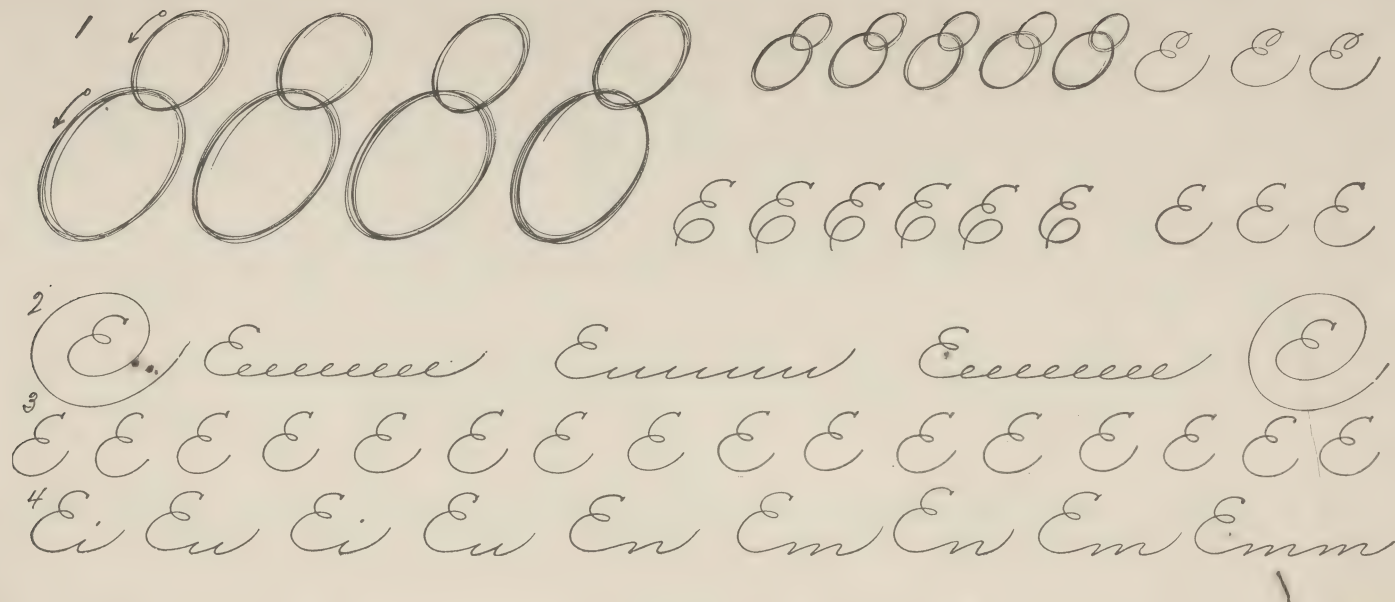 1 E E E
E E E E E E E E E
2 E Eeeeeeee Euuuu Eeeeeeee E
3 E E E E E E E E E E E E E E E E
4 Ei Eu Ei Eu En Em En Em Emm